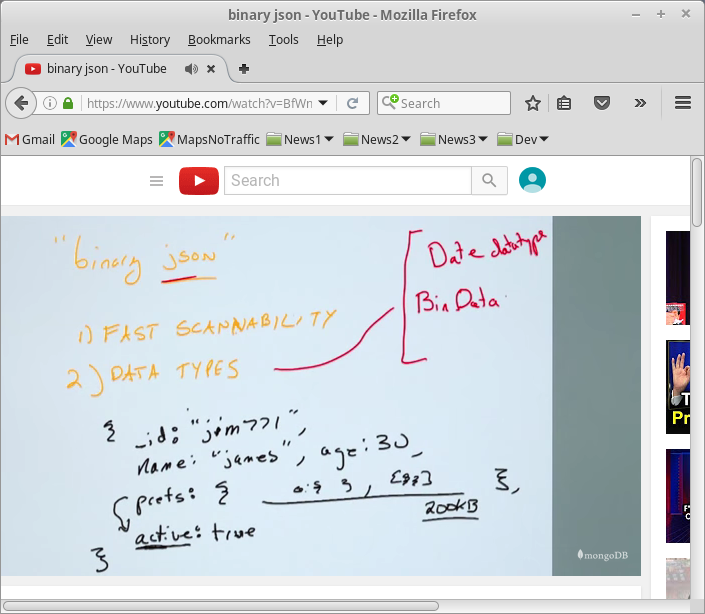 binary json - YouTube - Mozilla Firefox
File Edit View History Bookmarks Tools Help
binary json - YouTube
https://www.youtube.com/watch?v=BfWn
Search
Gmail Google Maps MapsNoTraffic News1 News2 News3 Dev
Search
"binary json"
Date datatype
Bin Data
1) FAST SCANNABILITY
2) DATA TYPES
{ _id: "jim771",
name: "james", age: 30,
prefs: {
},
200KB
active: true
}
mongoDB